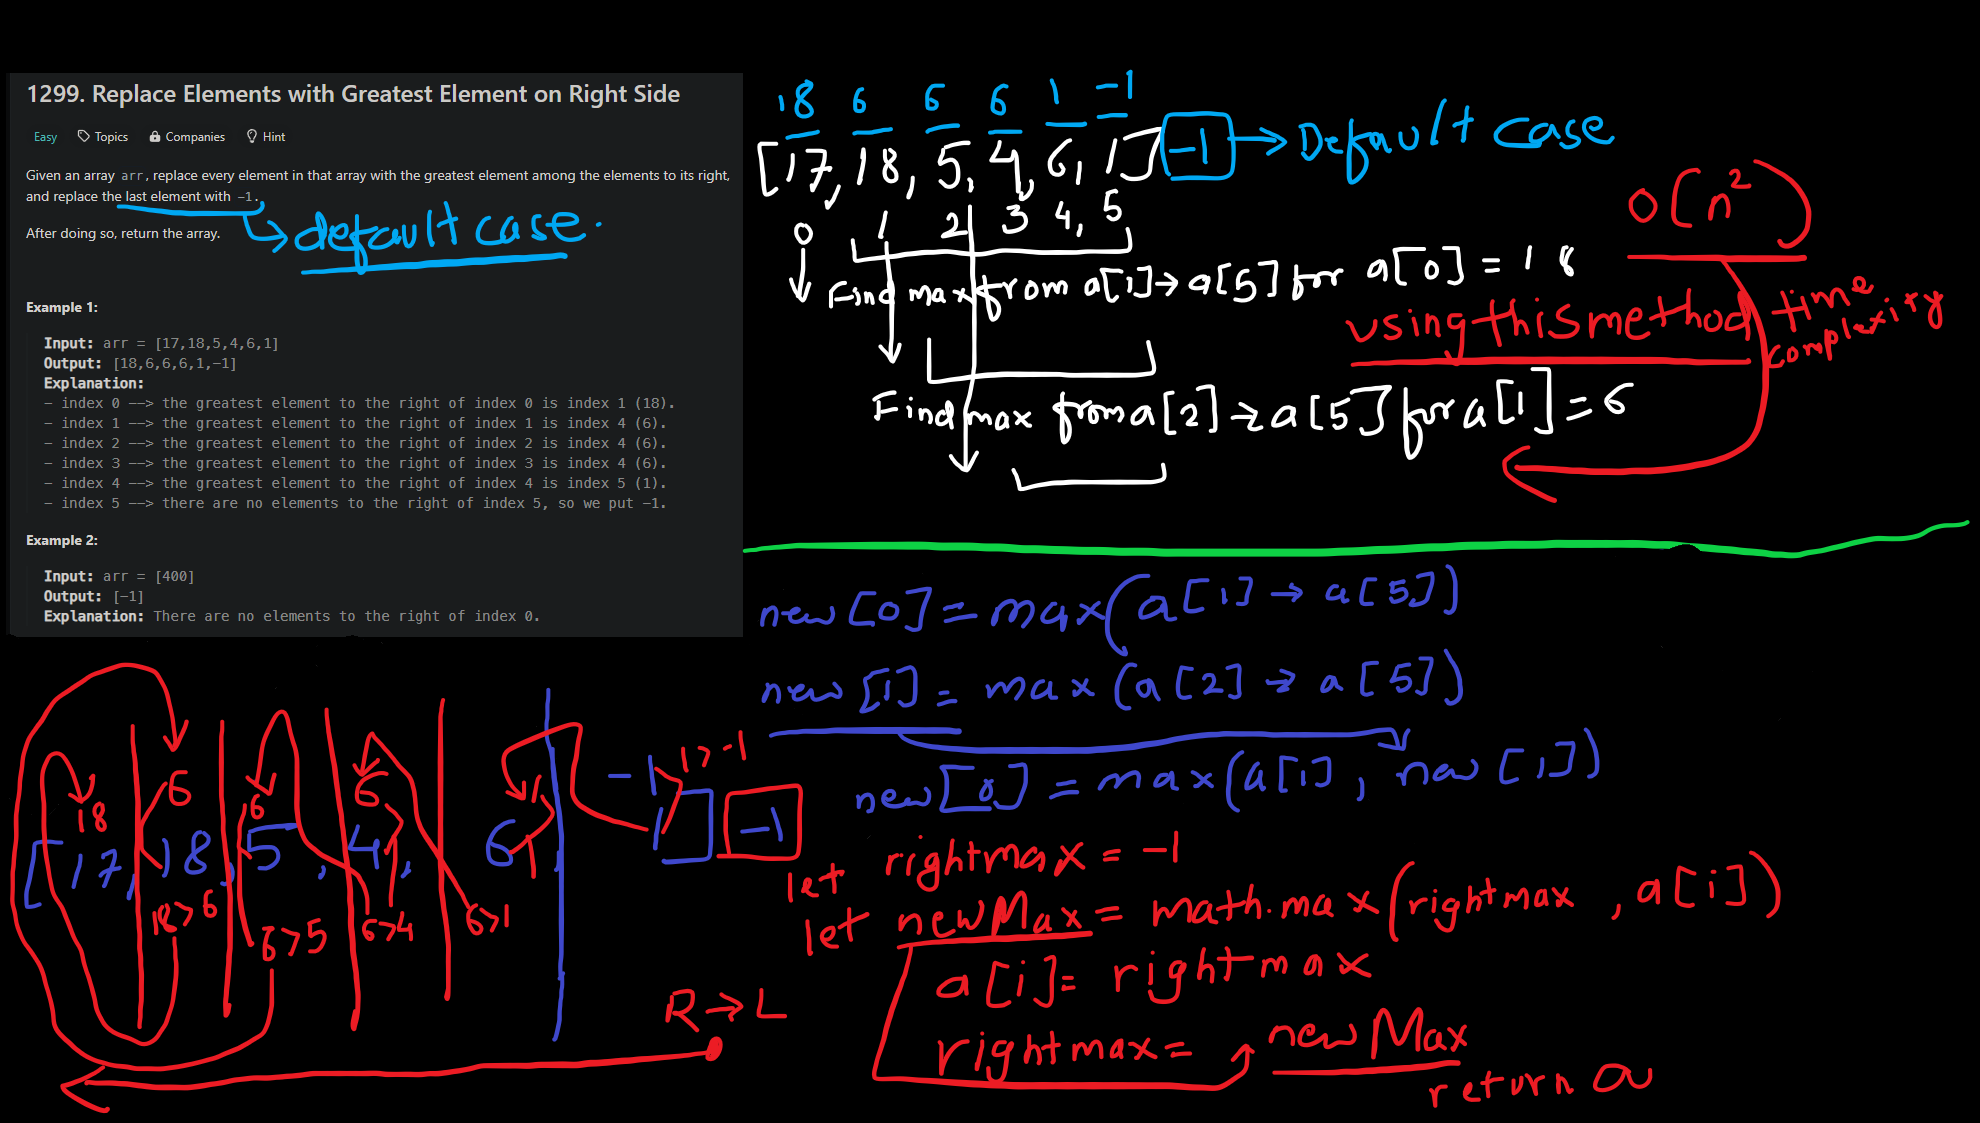 1299. Replace Elements with Greatest Element on Right Side
Easy Topics Companies Hint
Given an array arr, replace every element in that array with the greatest element among the elements to its right,
and replace the last element with -1.
After doing so, return the array.
default case.
Example 1:
Input: arr = [17,18,5,4,6,1]
Output: [18,6,6,6,1,-1]
Explanation:
- index 0 --> the greatest element to the right of index 0 is index 1 (18).
- index 1 --> the greatest element to the right of index 1 is index 4 (6).
- index 2 --> the greatest element to the right of index 2 is index 4 (6).
- index 3 --> the greatest element to the right of index 3 is index 4 (6).
- index 4 --> the greatest element to the right of index 4 is index 5 (1).
- index 5 --> there are no elements to the right of index 5, so we put -1.
Example 2:
Input: arr = [400]
Output: [-1]
Explanation: There are no elements to the right of index 0.
18 6 6 6 1 -1
[17, 18, 5, 4, 6, 1] -1 → Default case
0 1 2 3 4, 5
Find max from a[1] → a[5] for a[0] = 18
O(n²)
using this method time complexity
Find max from a[2] → a[5] for a[1] = 6
new[0] = max(a[1] → a[5])
new[1] = max(a[2] → a[5])
new[0] = max(a[1], new[1])
let rightmax = -1
let newMax = math.max(rightmax, a[i])
a[i] = rightmax
rightmax = newMax
return a
18 6 6 6 1 -1
1 > -1
[17, 18, 5, 4, 6, 1] -1
18>6 6>5 6>4 6>1
R → L